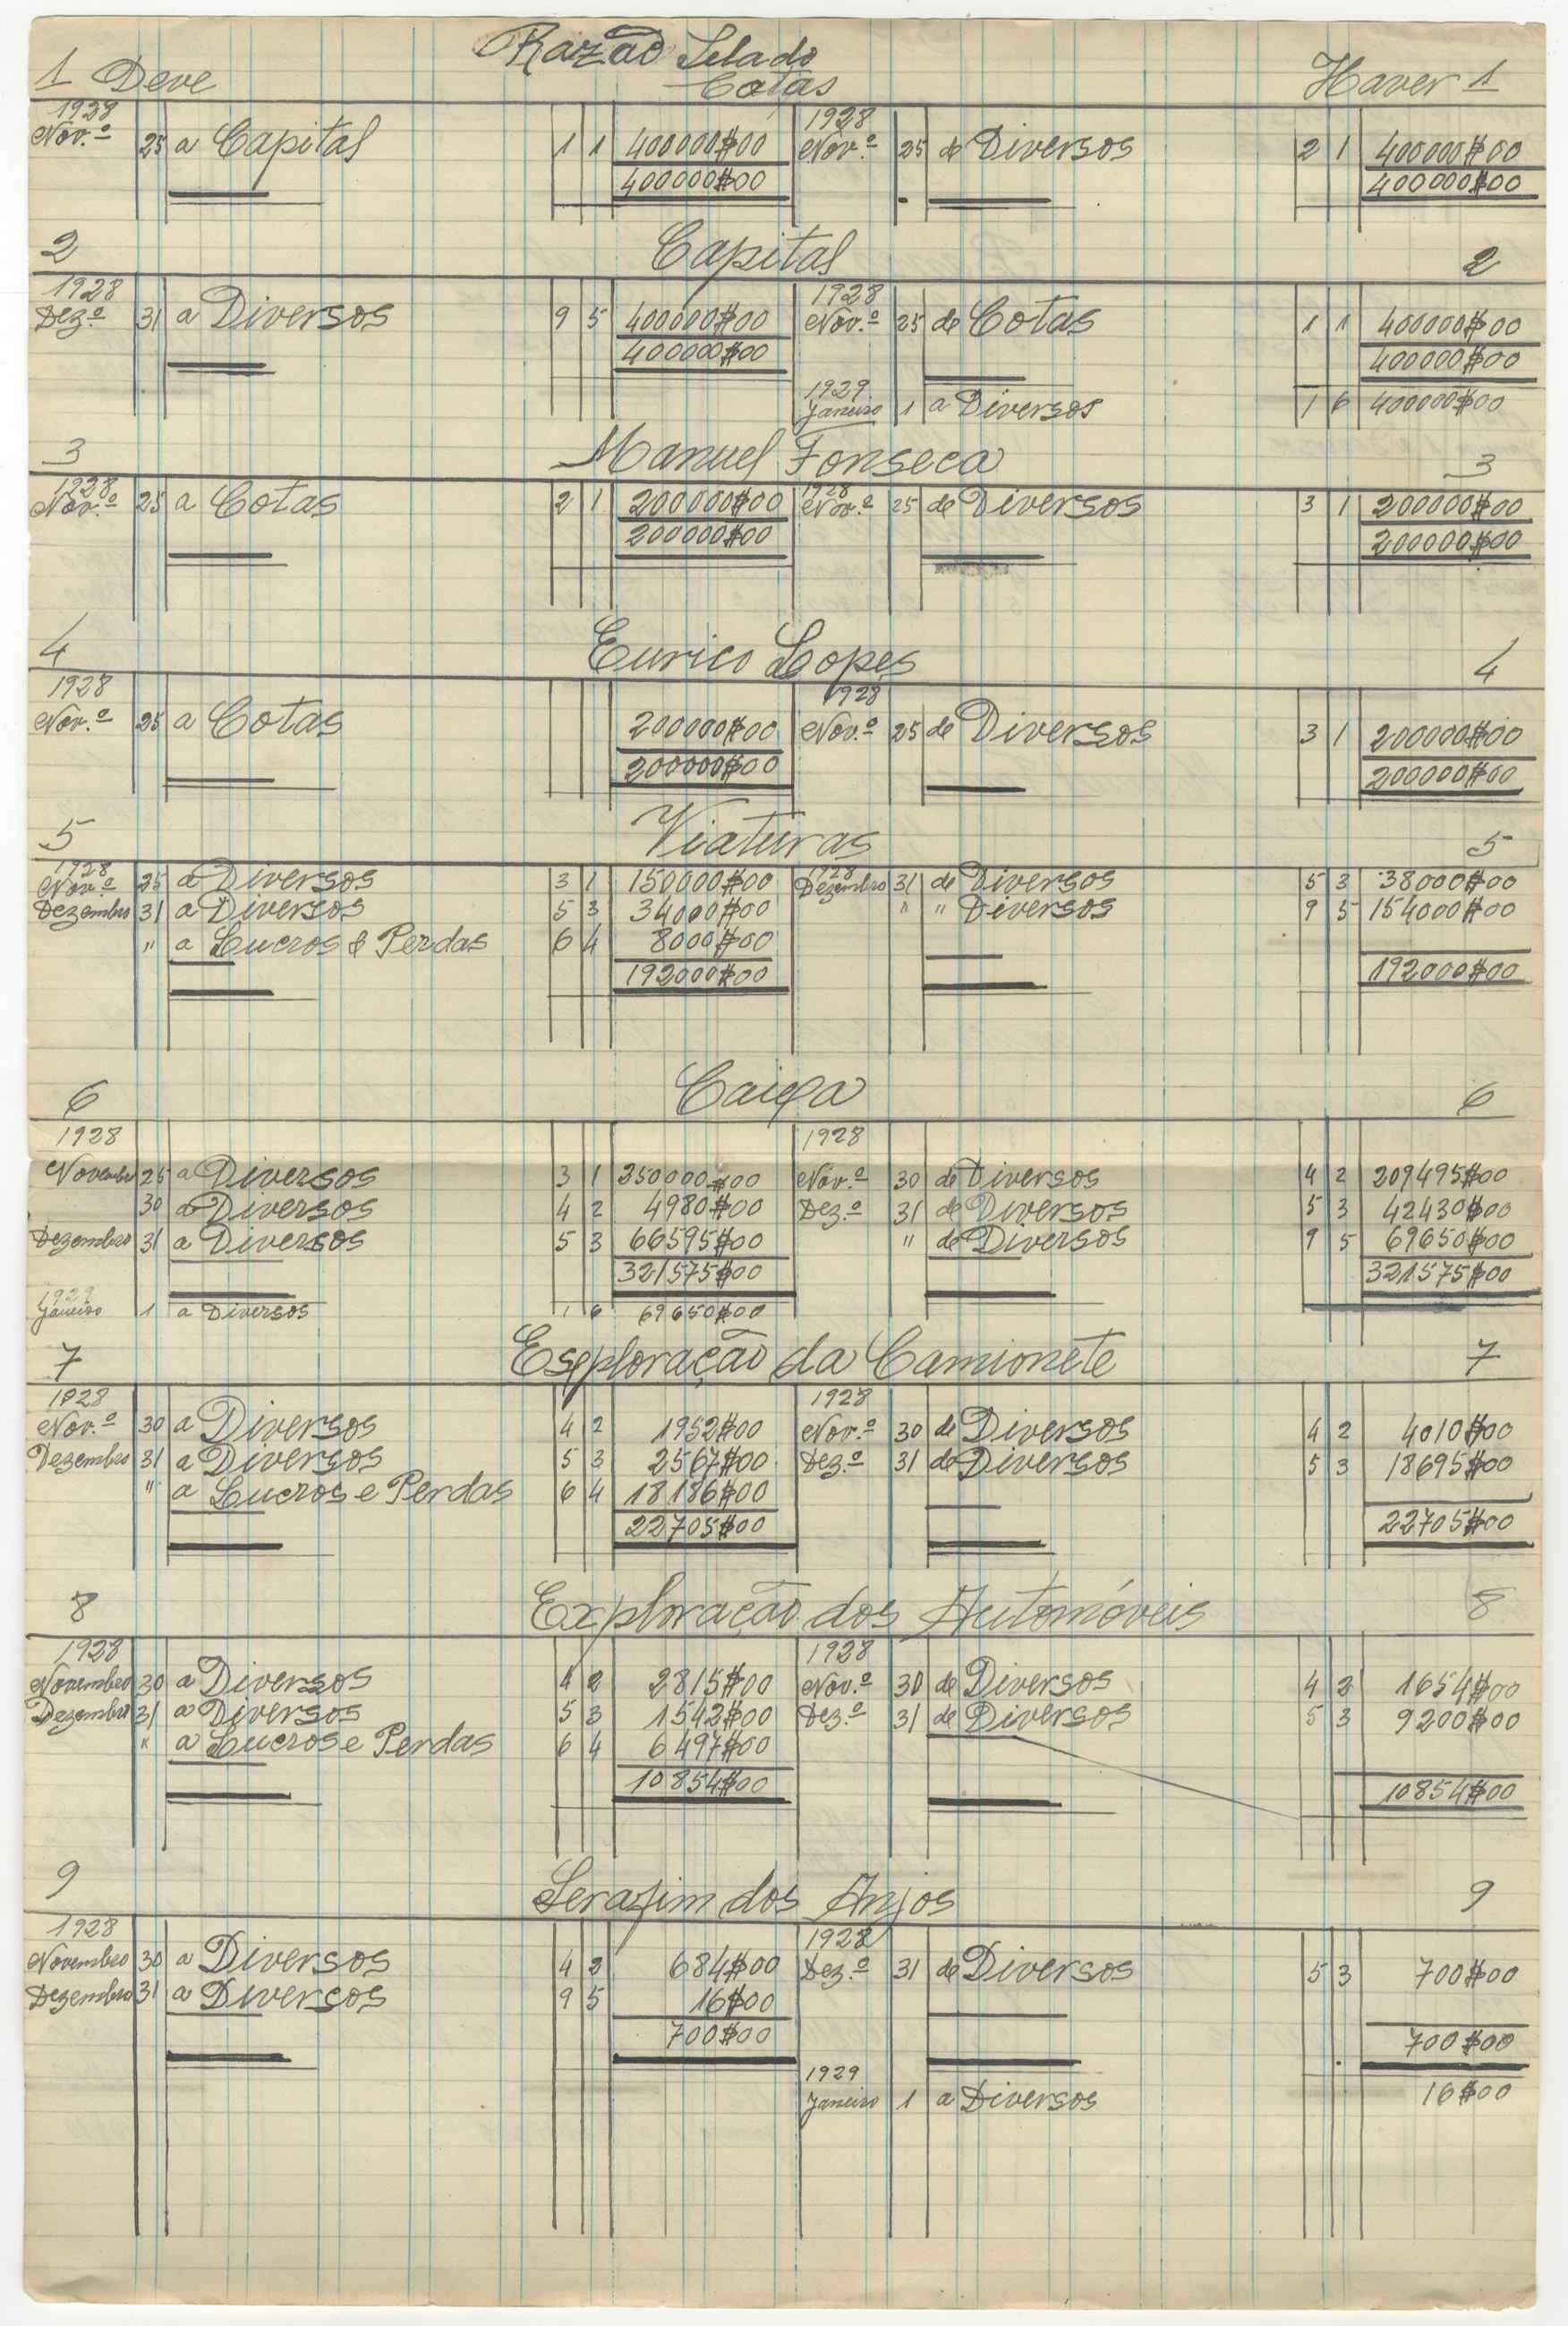 Razão Selado
1 Deve Cotas Haver 1
1928 1928
Nov.º 25 a Capital 1 1 400000$00 Nov.º 25 de Diversos 2 1 400000$00
400000$00 400000$00
2 Capital 2
1928 1928
Dez.º 31 a Diversos 9 5 400000$00 Nov.º 25 de Cotas 1 1 400000$00
400000$00 400000$00
1929
Janeiro 1 a Diversos 1 6 400000$00
3 Manuel Fonseca 3
1928 1928
Nov.º 25 a Cotas 2 1 200000$00 Nov.º 25 de Diversos 3 1 200000$00
200000$00 200000$00
4 Eurico Lopes 4
1928 1928
Nov.º 25 a Cotas 200000$00 Nov.º 25 de Diversos 3 1 200000$00
200000$00 200000$00
5 Viaturas 5
1928 1928
Nov.º 25 a Diversos 3 1 150000$00 Dezembro 31 de Diversos 5 3 38000$00
Dezembro 31 a Diversos 5 3 34000$00 " " Diversos 9 5 154000$00
" a Lucros & Perdas 6 4 8000$00
192000$00 192000$00
6 Caixa 6
1928 1928
Novembro 25 a Diversos 3 1 250000$00 Nov.º 30 de Diversos 4 2 209495$00
30 a Diversos 4 2 4980$00 Dez.º 31 de Diversos 5 3 42430$00
Dezembro 31 a Diversos 5 3 66595$00 " de Diversos 9 5 69650$00
321575$00 321575$00
1929
Janeiro 1 a Diversos 1 6 69650$00
7 Exploração da Camionete 7
1928 1928
Nov.º 30 a Diversos 4 2 1952$00 Nov.º 30 de Diversos 4 2 4010$00
Dezembro 31 a Diversos 5 3 2567$00 Dez.º 31 de Diversos 5 3 18695$00
" a Lucros e Perdas 6 4 18186$00
22705$00 22705$00
8 Exploração dos Automóveis 8
1928 1928
Novembro 30 a Diversos 4 2 2815$00 Nov.º 30 de Diversos 4 2 1654$00
Dezembro 31 a Diversos 5 3 1542$00 Dez.º 31 de Diversos 5 3 9200$00
" a Lucros e Perdas 6 4 6497$00
10854$00 10854$00
9 Serafim dos Anjos 9
1928 1928
Novembro 30 a Diversos 4 2 684$00 Dez.º 31 de Diversos 5 3 700$00
Dezembro 31 a Diversos 9 5 16$00
700$00 700$00
1929
Janeiro 1 a Diversos 16$00